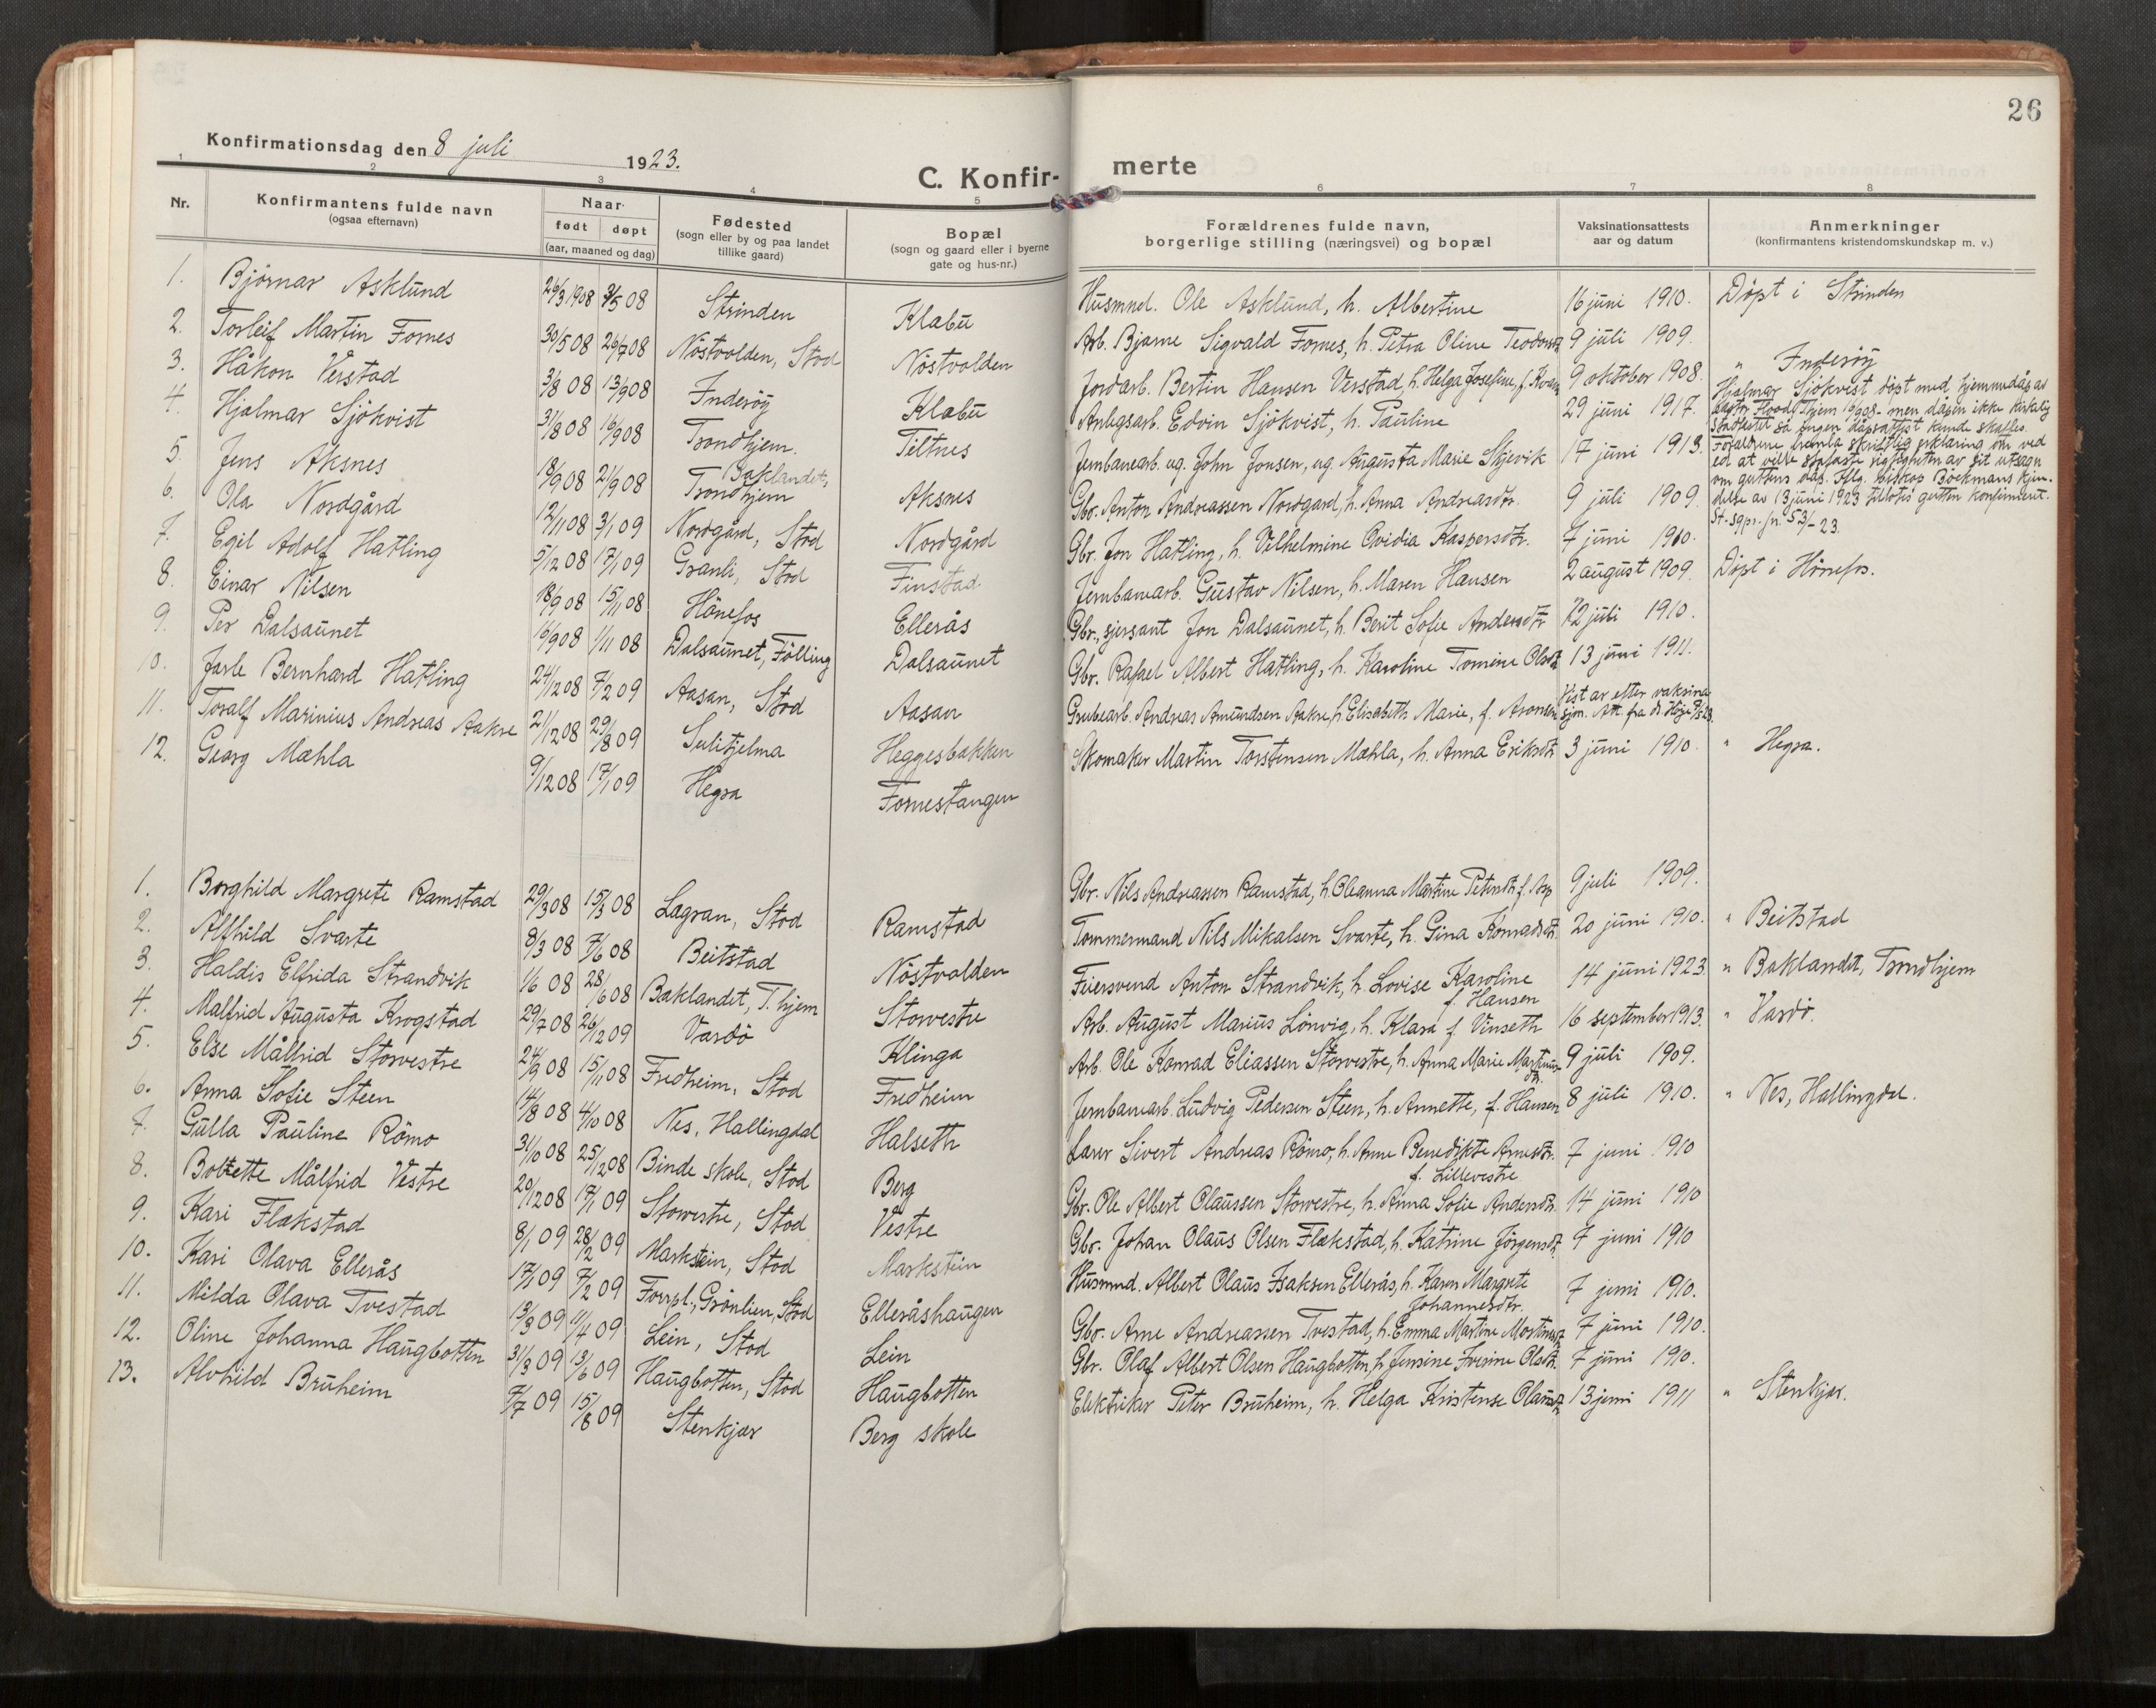 26
Konfirmationsdag den 8 juli 1923.
C. Konfir- merte
1 2 3 4 5 6 7 8
Nr.
Konfirmantens fulde navn
(ogsaa efternavn)
Naar
født døpt
(aar, maaned og dag)
Fødested
(sogn eller by og paa landet
tillike gaard)
Bopæl
(sogn og gaard eller i byerne
gate og hus-nr.)
Forældrenes fulde navn,
borgerlige stilling (næringsvei) og bopæl
Vaksinationsattests
aar og datum
Anmerkninger
(konfirmantens kristendomskundskap m. v.)
1. Bjørnar Asklund 26/3 1908 3/5 08 Strinden Klæbu Husmnd. Ole Asklund, h. Albertine 16 juni 1910. Døpt i Strinden
2. Torleif Martin Fornes 30/5 08 26/7 08 Nöstvolden, Stod Nöstvolden Arb. Bjarne Sigvald Fornes, h. Petra Oline Teodorsdt. 9 juli 1909.
3. Håkon Verstad 3/8 08 13/9 08 Inderöy Klæbu Jordarb. Bertin Hansen Verstad, h. Helga Josefine, f. Kvam 9 oktober 1908. " Inderöy
4. Hjalmar Sjökvist 31/8 08 16/9 08 Trondhjem. Tiltnes Anlegsarb. Edvin Sjökvist, h. Pauline 29 juni 1917.
Hjalmar Sjökvist döpt med hjemmedåp av
Hood, Thjem 16/9 08 - men dåpen ikke kirkelig
stadfestet så ingen dåpsattest kunde skaffes.
Forældrene fremla skriftlig erklæring om ved
ed at ville stadfæste rigtigheten av sit utsagn
om guttens dåp. Iflg. biskop Böckmans kjen-
delse av 13 juni 1923 tillotes gutten konfirmeret.
St-sgpr. jn. 53/-23.
5. Jens Aksnes 18/9 08 21/9 08 Baklandet, Trondhjem Aksnes Jernbanearb. ug. John Jensen, ug. Augusta Marie Skjevik 17 juni 1913.
6. Ola Nordgård 12/11 08 3/1 09 Nordgård, Stod Nordgård Gbr. Anton Andreassen Nordgård, h. Anna Andreasdtr. 9 juli 1909.
7. Egil Adolf Hatling 5/12 08 17/1 09 Granli, Stod Finstad Gbr. Jon Hatling, h. Vilhelmine Ovidia Kaspersdtr. 7 juni 1910.
8. Einar Nilsen 18/9 08 15/11 08 Hönefos Ellerås Jernbanearb. Gustav Nilsen, h. Maren Hansen 2 august 1909. Døpt i Hönefos.
9. Per Dalsaunet 16/9 08 1/11 08 Dalsaunet, Fölling Dalsaunet Gbr., sjersant Jon Dalsaunet, h. Berit Sofie Andersdtr 12 juli 1910.
10. Jarle Bernhard Hatling 24/12 08 7/2 09 Aasan, Stod Aasan Gbr. Rafael Albert Hatling, h. Karoline Tomine Olsdt. 13 juni 1911.
11. Toralf Marinius Andreas Aakre 21/12 08 29/8 09 Sulitjelma Heggesbakken Grubearb. Andreas Amundsen Aakre, h. Elisabeth Marie, f. Aronsen
Vist ar efter vaksina
sjon. Att. fra dr Höje
12. Georg Mæhla 9/12 08 17/1 09 Hegra Fornestangen Skomaker Martin Torstensen Mæhla, h. Anna Eriksdtr 3 juni 1910. " Hegra.
1. Borghild Margrete Ramstad 29/3 08 15/3 08 Lagran, Stod Ramstad Gbr. Nils Andreassen Ramstad, h. Oleanna Martine Petersdt. f. Asp 9 juli 1909.
2. Alfhild Svarte 8/3 08 7/6 08 Beitstad Nöstvolden Tømmermand Nils Mikalsen Svarte, h. Gina Konradsdt. 20 juni 1910. " Beitstad
3. Haldis Elfrida Strandvik 1/6 08 28/6 08 Baklandet, T.hjem Storvestre Feiersvend Anton Strandvik, h. Lovise Karoline
f. Hansen 14 juni 1923 " Baklandet, Trondhjem
4. Malfrid Augusta Krogstad 29/7 08 26/12 09 Vardö Klinga Arb. August Marius Lönvig, h. Klara f. Vinseth 16 september 1913. " Vardö.
5. Else Målfrid Storvestre 24/9 08 15/11 08 Fredheim, Stod Fredheim Arb. Ole Konrad Eliassen Storvestre, h. Anna Marie Martinus-
dtr. 9 juli 1909.
6. Anna Sofie Steen 14/8 08 4/10 08 Nes, Hallingdal Halseth Jernbanearb. Ludvig Pedersen Steen, h. Annette, f. Hansen 8 juli 1910. " Nes, Hallingdal.
7. Gulla Pauline Römo 31/10 08 25/12 08 Binde skole, Stod Berg Lærer Sivert Andreas Römo, h. Anne Benedikte Arnesdtr.
f. Lillevestre 7 juni 1910
8. Boletette Målfrid Vestre 20/12 08 17/1 09 Storvestre, Stod Vestre Gbr. Ole Albert Olaussen Storvestre, h. Anna Sofie Andersdt. 14 juni 1910
9. Kari Flækstad 8/1 09 28/2 09 Markstein, Stod Markstein Gbr. Johan Olaus Olsen Flækstad, h. Katrine Jörgensdt. 7 juni 1910
10. Kari Olava Ellerås 17/1 09 7/2 09 Forpl., Grönlien, Stod Elleråshaugen Husmnd. Albert Olaus Isaksen Ellerås, h. Karen Margrete
Johannesdtr. 7 juni 1910.
11. Milda Olava Tvestad 13/3 09 11/4 09 Lein, Stod Lein Gbr. Arne Andreassen Tvestad, h. Emma Martine Mortensdt. 7 juni 1910.
12. Oline Johanna Haugbotten 31/3 09 13/6 09 Haugbotten, Stod Haugbotten Gbr. Olaf Albert Olsen Haugbotten, h. Jensine Irinine Olsdt. 7 juni 1910.
13. Alvhild Bruheim 7/7 09 15/8 09 Stenkjær Berg skole Elektriker Peter Bruheim, h. Helga Kristense Olausdt. 13 juni 1911 " Stenkjær.